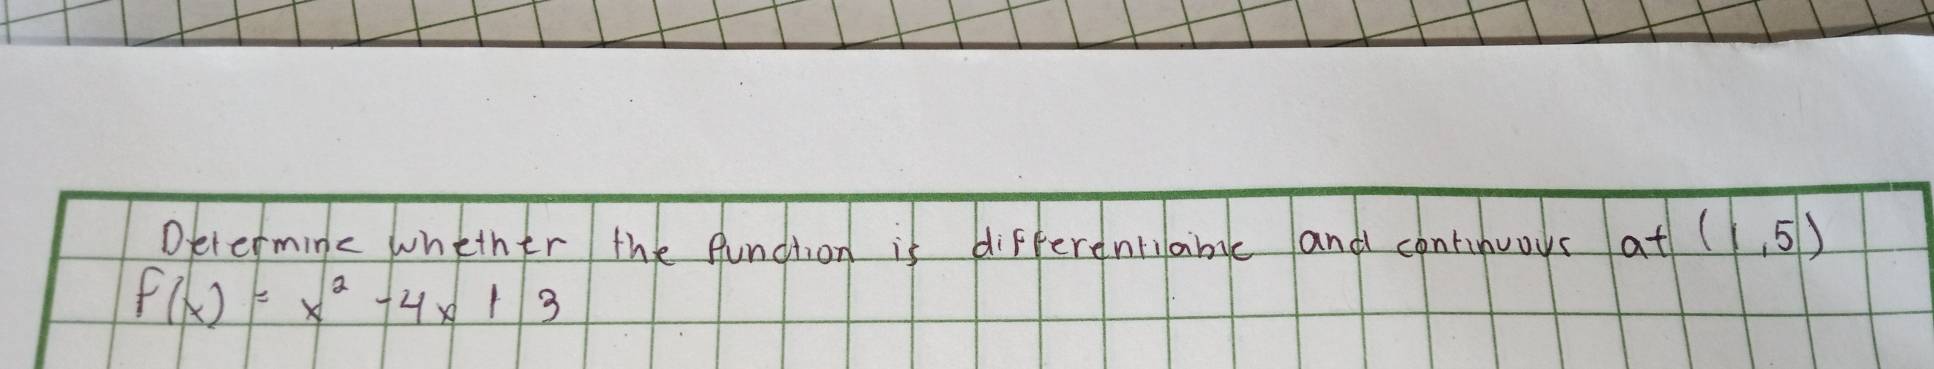 Determine whether the function is differentiable and continuous at (1,5)
f(x) = x² - 4x + 3